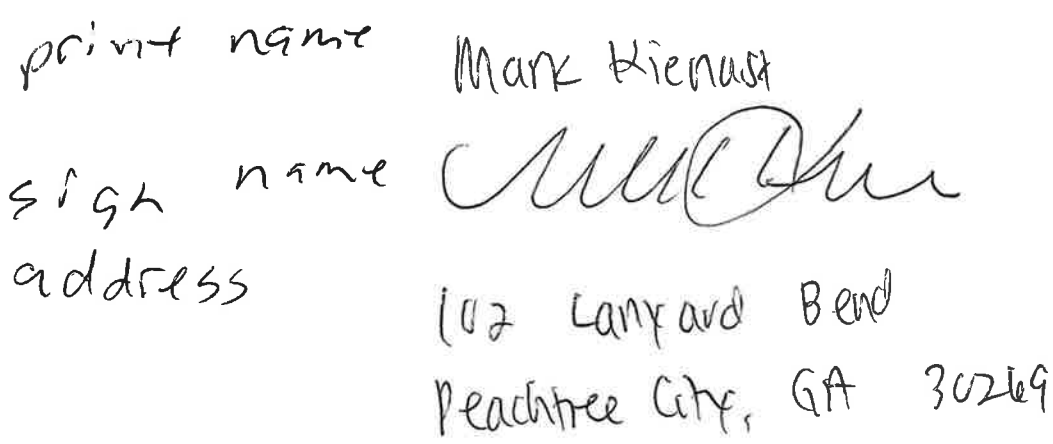 print name Mark Kienast
sign name
address
102 Lanyard Bend
Peachtree City, GA 30269